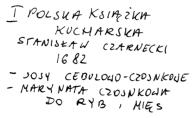 I POLSKA KSIĄŻKA
KUCHARSKA
STANISŁAW CZARNECKI
1682
- SOSY CEBULOWO-CZOSNKOWE
- MARYNATA CZOSNKOWA
DO RYB I MIĘS